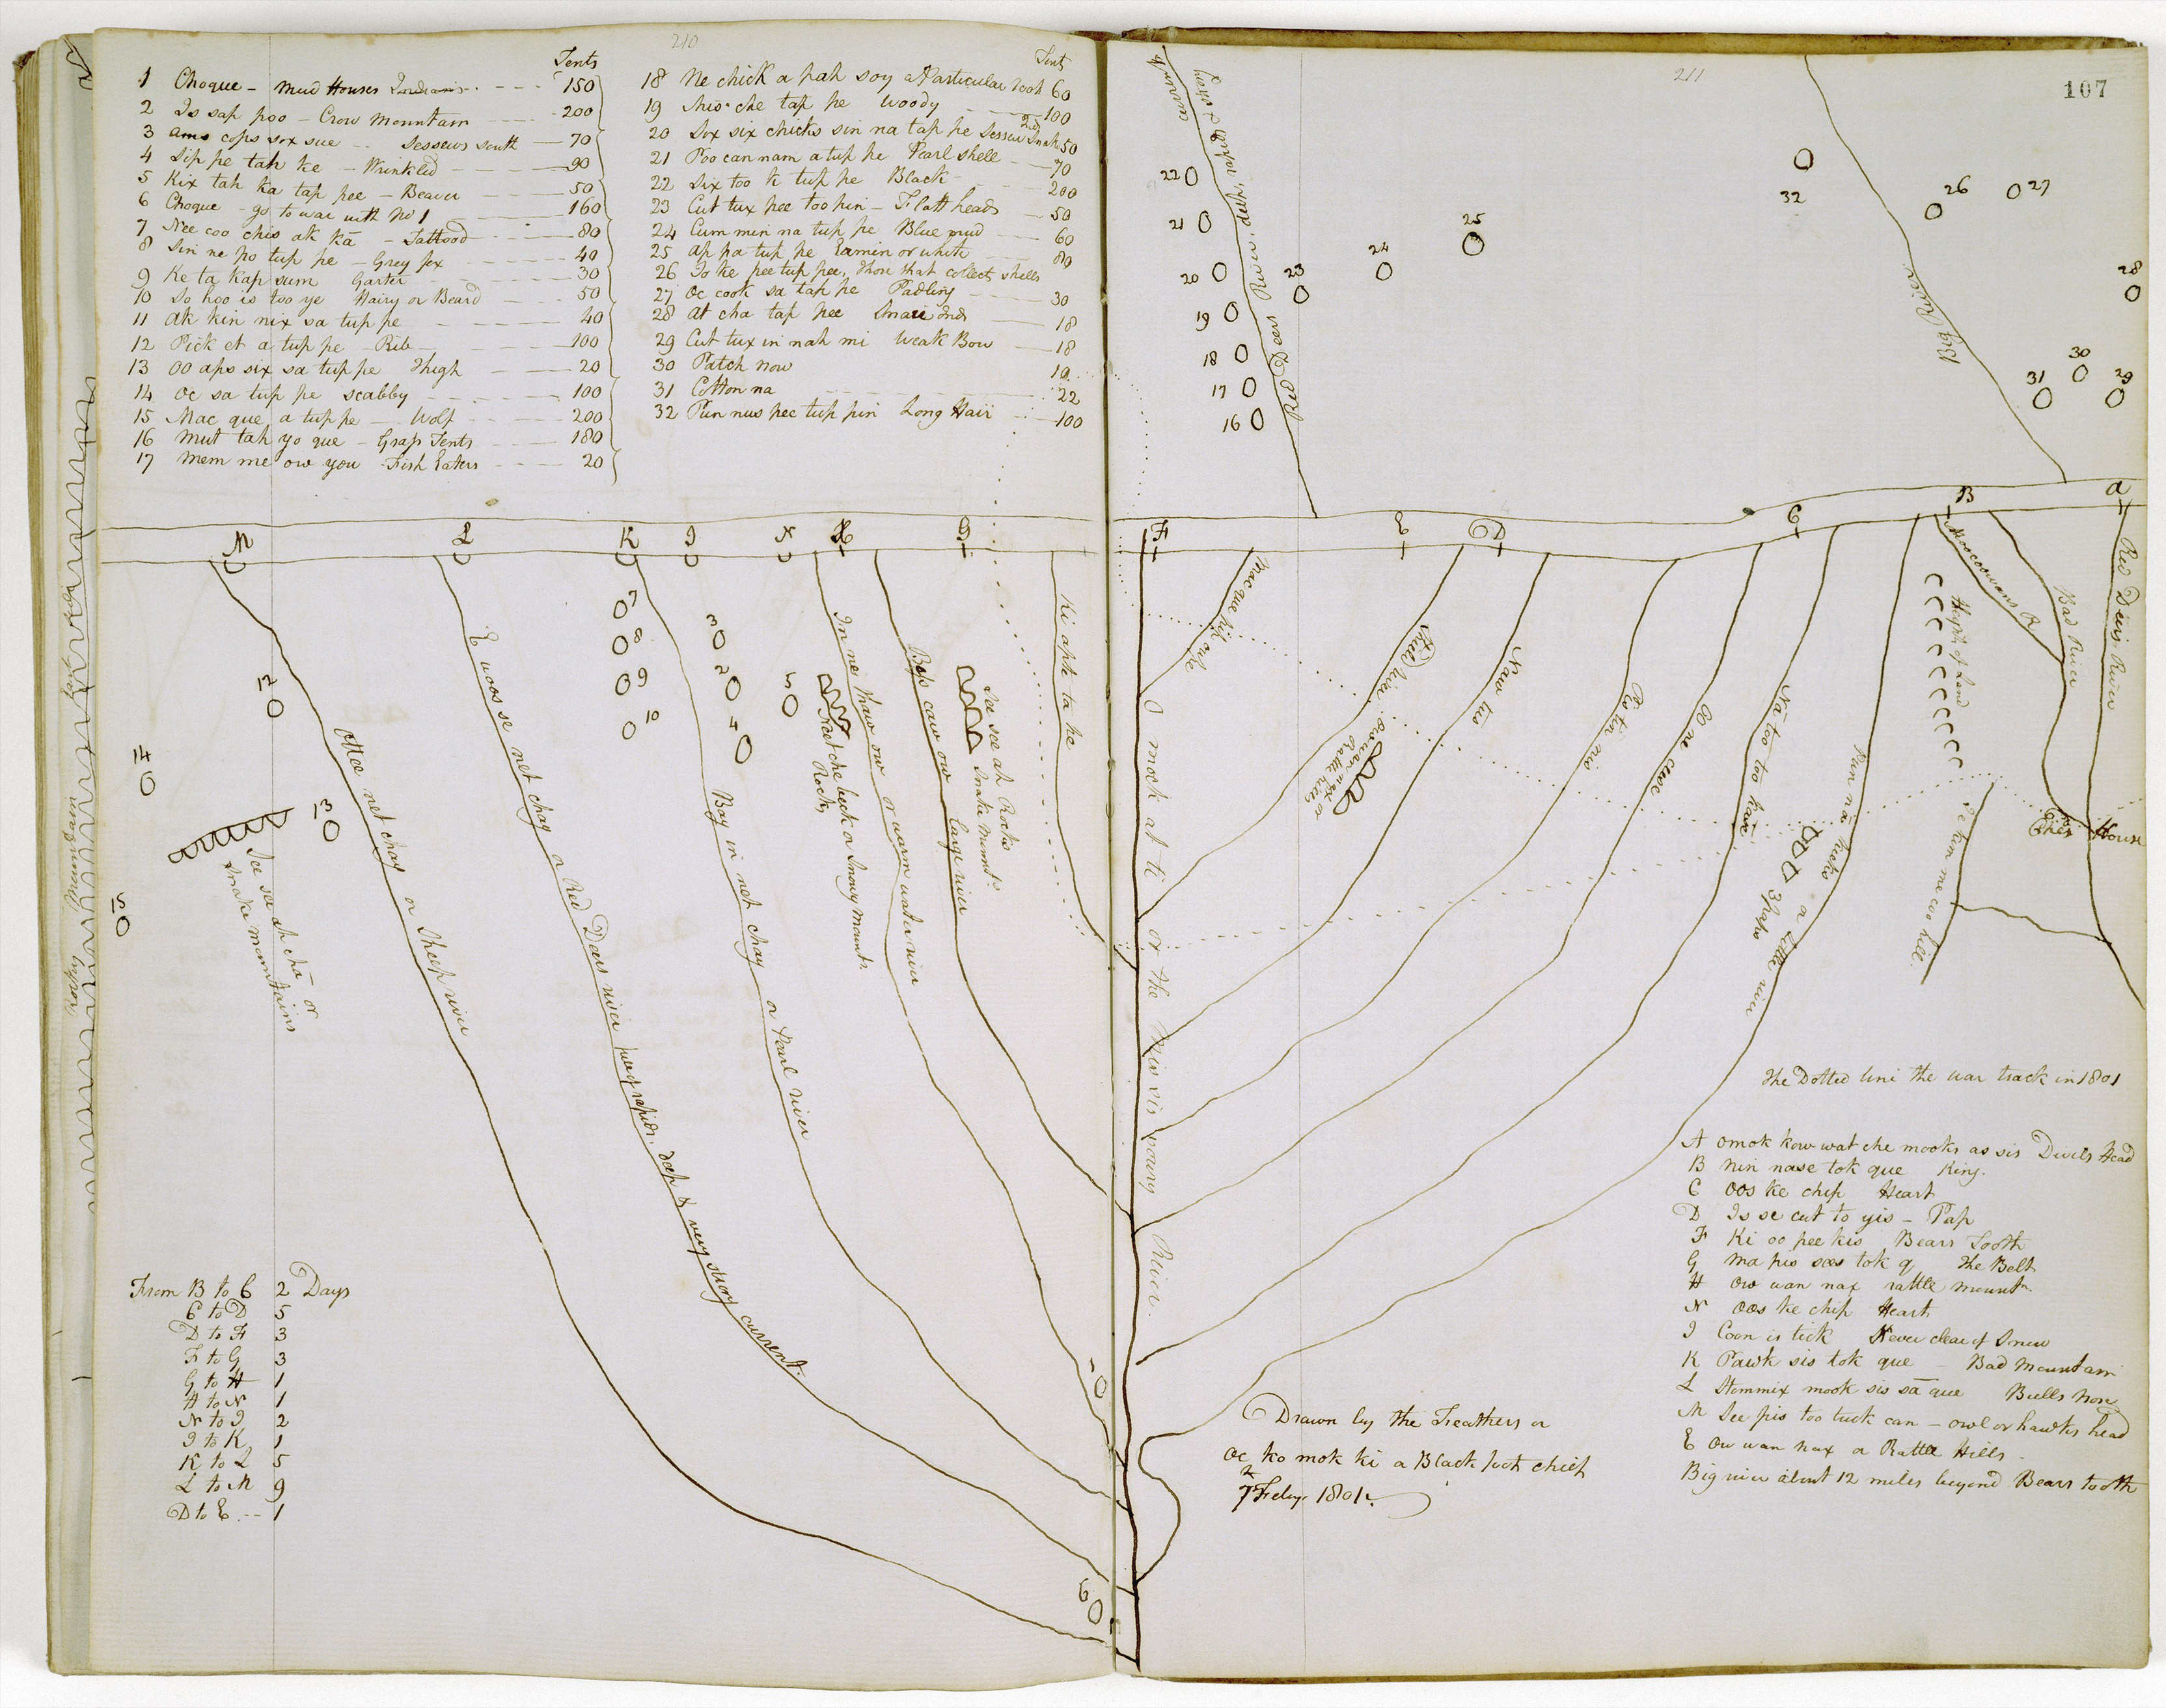 210
Tents
1 Choque - Mud Houses Indians - - - 150
2 Is sap poo - Crow Mountain - - - 200
3 ams cops sox sue - - Sessews south - 70
4 Sip pe tah ke - Wrinkled - - - 90
5 Kix tah ka tap pee - Beaver - - 50
6 Choque - go to war with No 1 - 160
7 Nee coo chis ak kā - Tattood - 80
8 Sin ne po tup pe - Grey fox - - - 40
9 Ke ta kap sum Garter - - - 30
10 So hoo is too ye Hairy or Beard - - 50
11 Ak kin nix sa tup pe - - - - 40
12 Pick et a tup pe - Rib - - - 100
13 oo aps six sa tup pe Thigh - - 20
14 Oc sa tup pe scabby - - - - 100
15 Mac que a tup pe - Wolf - - - 200
16 Mut tah yo que - Grass Tents - - - 180
17 Mem me ow you - Fish Eaters - - - 20
Tents
18 Ne chick a pah soy a Particular root 60
19 Shis che tap pe Woody - - 100
20 Sox six chicks sin na tap pe Sessew Snake 50
21 Poo can nam a tup pe Pearl shell - - 70
22 Six too k tup pe Black - - - 200
23 Cut tux pee too pin - Flatt heads - 50
24 Cum min na tup pe Blue mud - - 60
25 Ap pa tup pe Ermin or white - - 80
26 To ke pee tup pee, those that collect shells
27 Oc cook sa tap pe Padling - - 30
28 At cha tap pee Snare Inds - - 18
29 Cut tux in nah mi Weak Bow - 18
30 Patch now 10
31 Cotton na - - - 22
32 Pun nus pee tup pin Long Hair - - 100
211
107
Red Deers River, deep, rapid & strong
current
22
21
20
19
18
17
16
23
24
25
32
26
27
28
30
31
29
Big River
M
L
K
I
N
H
G
F
E
D
C
B
A
Rocky Mountain
12
14
13
15
See see ah cha or
Snake mountains
Ottee net chay or Sheep river
E woos se net chay or Red Deers river full of rapids, deep & very strong current
7
8
9
10
3
2
4
5
Bay in net chay or Pearl River
Neetche heek or Snowy mounts
Rocks
In ne thaw ow or warm water river
Bess caw ow large river
See see ah Rocks
Snake Mounts
Ki aps ta ke
O mock at ti or the Missisoury River.
Mac que
Shell river
Ow wan nax or
Rattle hills
Naw tus
Pis tin nis
O ne cwe
Nā too too kase
Pun nā keeks or Little river
3 Paps
Height of Land
Moocoowans R
Bad River
Red Deers River
Ches House
Pe kum me coo hill.
1
6
The Dotted line the war track in 1801
A Omok kow wat che mooks as sis Divels Head
B Nin nase tok que King.
C Oos ke chip Heart
D Is se cut to yis - Pap
F Ki oo pee kis Bears Tooth
G Ma pis sees tok q The Belt
H Ow wan nax rattle mountn.
N Oos ke chip Heart
I Coon is tick Never clear of Snow
K Pawk sis tok que - Bad Mountain
L Stommix mook sis sā que Bulls Nose
M See pis too tuck can - owl or hawks head
E Ow wan nax or Rattle Hills.
Big river about 12 miles beyond Bears tooth
From B to C 2 Days
C to D 5
D to F 3
F to G 3
G to H 1
H to N 1
N to I 2
I to K 1
K to L 5
L to M 9
D to E - - 1
Drawn by the Feathers or
Oc ko mok ki a Black foot chief
7 Feby 1801.